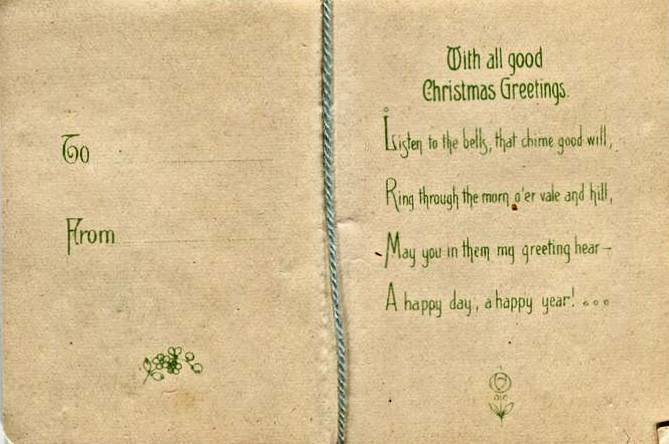 To
From
With all good
Christmas Greetings.
Listen to the bells, that chime good will,
Ring through the morn o'er vale and hill,
May you in them my greeting hear—
A happy day, a happy year! ...